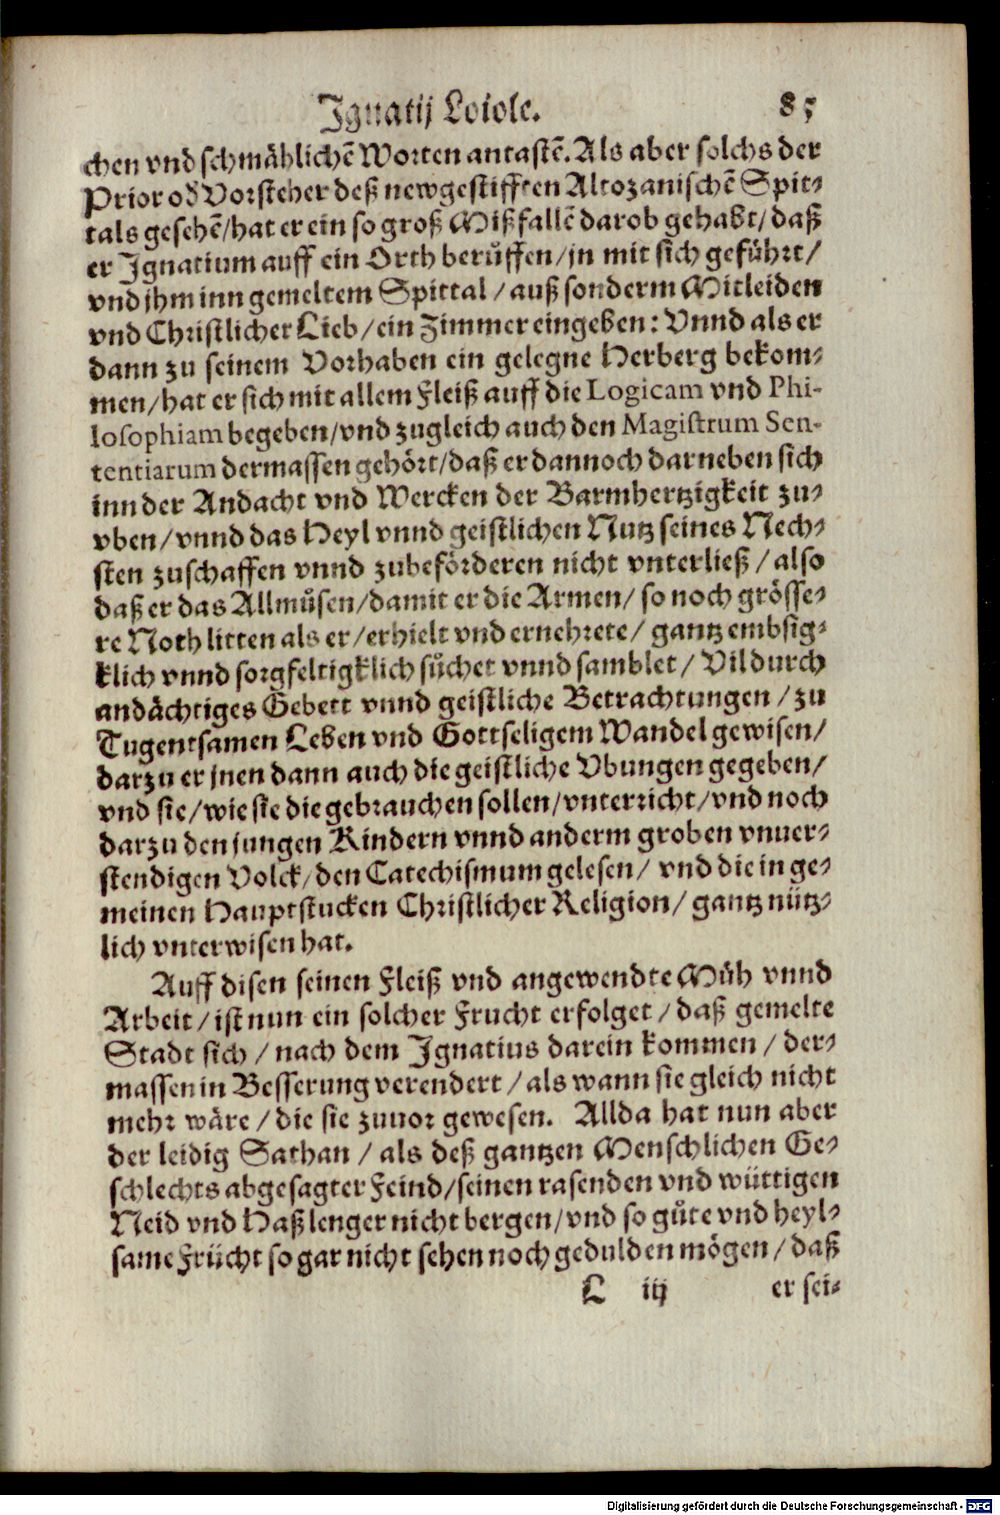 Ignatij Loiole. 85
chen vnd schmählichẽ Worten antastẽ. Als aber solchs der
Prior od̃ Vorsteher deß newgestifften Altozanischẽ Spit-
tals gesehẽ/hat er ein so groß Mißfallẽ darob gehabt/daß
er Ignatium auff ein Orth berůffen/jn mit sich geführt/
vnd jhm inn gemeltem Spittal/auß sonderm Mitleiden
vnd Christlicher Lieb/ein Zimmer eingeben: Vnnd als er
dann zu seinem Vorhaben ein gelegne Herberg bekom-
men/hat er sich mit allem Fleiß auff die Logicam vnd Phi-
losophiam begeben/vnd zugleich auch den Magistrum Sen-
tentiarum dermassen gehört/daß er dannoch darneben sich
inn der Andacht vnd Wercken der Barmhertzigkeit zu-
vben/vnnd das Heyl vnnd geistlichen Nutz seines Nech-
sten zuschaffen vnnd zubeförderen nicht vnterließ/also
daß er das Allmůsen/damit er die Armen/so noch grösse-
re Noth litten als er/erhielt vnd ernehrete/gantz embsig-
klich vnnd sorgfeltigklich sůchet vnnd samblet/Vil durch
andächtiges Gebett vnnd geistliche Betrachtungen/zu
Tugentsamen Leben vnd Gottseligem Wandel gewisen/
darzu er jnen dann auch die geistliche Vbungen gegeben/
vnd sie/wie sie die gebrauchen sollen/vnterricht/vnd noch
darzu den jungen Kindern vnnd anderm groben vnuer-
stendigen Volck/den Catechismum gelesen/vnd die in ge-
meinen Hauptstucken Christlicher Religion/gantz nütz-
lich vnterwisen hat.
Auff disen seinen Fleiß vnd angewendte Můh vnnd
Arbeit/ist nun ein solcher Frucht erfolget/daß gemelte
Stadt sich/nach dem Ignatius darein kommen/der-
massen in Besserung verendert/als wann sie gleich nicht
mehr wäre/die sie zuuor gewesen. Allda hat nun aber
der leidig Sathan/als deß gantzen Menschlichen Ge-
schlechts abgesagter Feind/seinen rasenden vnd wüttigen
Neid vnd Haß lenger nicht bergen/vnd so gůte vnd heyl-
same Frücht so gar nicht sehen noch gedulden mögen/daß
L iij er sei-
Digitalisierung gefördert durch die Deutsche Forschungsgemeinschaft - DFG